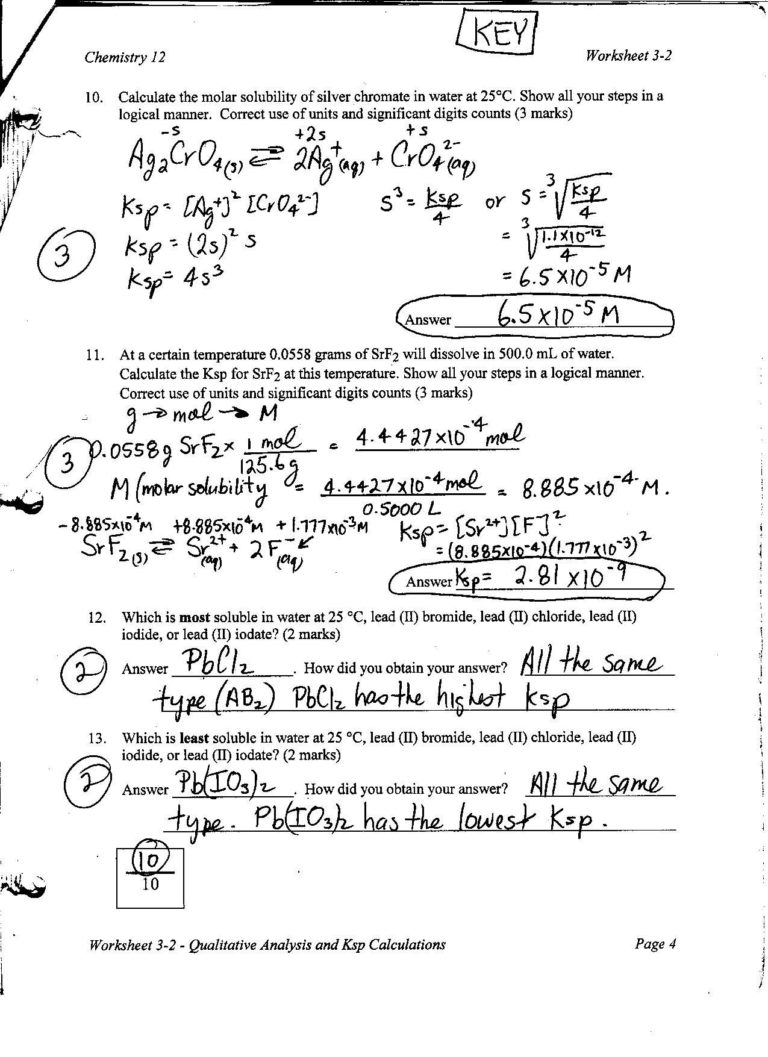 KEY
Chemistry 12 Worksheet 3-2
10. Calculate the molar solubility of silver chromate in water at 25°C. Show all your steps in a
logical manner. Correct use of units and significant digits counts (3 marks)
-s +2s +s
Ag₂CrO₄(s) ⇌ 2Ag⁺(aq) + CrO₄²⁻(aq)
Ksp = [Ag⁺]² [CrO₄²⁻] S³ = Ksp/4 or S = ³√(Ksp/4)
3 Ksp = (2s)² s = ³√(1.1x10⁻¹²/4)
Ksp = 4s³ = 6.5x10⁻⁵ M
Answer 6.5x10⁻⁵ M
11. At a certain temperature 0.0558 grams of SrF₂ will dissolve in 500.0 mL of water.
Calculate the Ksp for SrF₂ at this temperature. Show all your steps in a logical manner.
Correct use of units and significant digits counts (3 marks)
g → mol → M
3 0.0558g SrF₂ x 1 mol/125.6g = 4.4427x10⁻⁴ mol
M (molar solubility = 4.4427x10⁻⁴ mol/0.5000 L = 8.885x10⁻⁴ M.
-8.885x10⁻⁴M +8.885x10⁻⁴M +1.777x10⁻³M Ksp = [Sr²⁺][F⁻]²
SrF₂(s) ⇌ Sr²⁺(aq) + 2F⁻(aq) = (8.885x10⁻⁴)(1.777x10⁻³)²
Answer Ksp = 2.81x10⁻⁹
12. Which is most soluble in water at 25 °C, lead (II) bromide, lead (II) chloride, lead (II)
iodide, or lead (II) iodate? (2 marks)
2 Answer PbCl₂. How did you obtain your answer? All the same
type (AB₂) PbCl₂ has the highest Ksp
13. Which is least soluble in water at 25 °C, lead (II) bromide, lead (II) chloride, lead (II)
iodide, or lead (II) iodate? (2 marks)
2 Answer Pb(IO₃)₂. How did you obtain your answer? All the same
type. Pb(IO₃)₂ has the lowest Ksp.
10
10
Worksheet 3-2 - Qualitative Analysis and Ksp Calculations Page 4